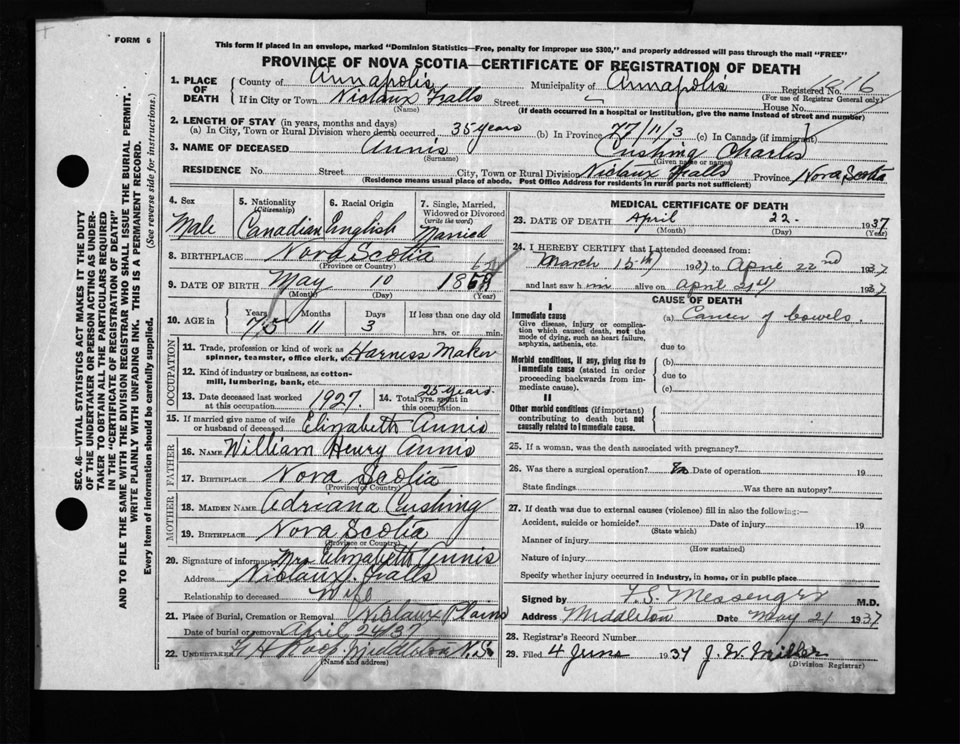 FORM 6
This form if placed in an envelope, marked "Dominion Statistics—Free, penalty for improper use $300," and properly addressed will pass through the mail "FREE"
PROVINCE OF NOVA SCOTIA—CERTIFICATE OF REGISTRATION OF DEATH
SEC. 46—VITAL STATISTICS ACT MAKES IT THE DUTY
OF THE UNDERTAKER OR PERSON ACTING AS UNDER-
TAKER TO OBTAIN ALL THE PARTICULARS REQUIRED
IN THE "CERTIFICATE OF REGISTRATION OF DEATH"
AND TO FILE THE SAME WITH THE DIVISION REGISTRAR WHO SHALL ISSUE THE BURIAL PERMIT.
WRITE PLAINLY WITH UNFADING INK. THIS IS A PERMANENT RECORD.
Every item of information should be carefully supplied. (See reverse side for instructions.)
1. PLACE OF DEATH County of Annapolis Municipality of Annapolis Registered No. 1816
(For use of Registrar General only)
If in City or Town Nictaux Falls Street House No.
(Name) (If death occurred in a hospital or institution, give the name instead of street and number)
2. LENGTH OF STAY (in years, months and days)
(a) In City, Town or Rural Division where death occurred 35 years (b) In Province 77/11/3 (c) In Canada (if immigrant)
3. NAME OF DECEASED Annis Cushing Charles
(Surname) (Given name or names)
RESIDENCE No. Street City, Town or Rural Division Nictaux Falls Province Nova Scotia
(Residence means usual place of abode. Post Office Address for residents in rural parts not sufficient)
4. Sex Male
5. Nationality (Citizenship) Canadian
6. Racial Origin English
7. Single, Married, Widowed or Divorced (write the word) Married
8. BIRTHPLACE Nova Scotia
(Province or Country)
9. DATE OF BIRTH May 10 18
(Month) (Day) (Year)
10. AGE in Years Months 11 Days 3 If less than one day old
hrs. or min.
OCCUPATION
11. Trade, profession or kind of work as spinner, teamster, office clerk, etc. Harness Maker
12. Kind of industry or business, as cotton-mill, lumbering, bank, etc.
13. Date deceased last worked at this occupation 1927. 14. Total yrs. spent in this occupation 25 years.
15. If married give name of wife or husband of deceased Elizabeth Annis
FATHER
16. NAME William Henry Annis
17. BIRTHPLACE Nova Scotia
(Province or Country)
MOTHER
18. MAIDEN NAME Adriana Cushing
19. BIRTHPLACE Nova Scotia
(Province or Country)
20. Signature of informant Mrs Elizabeth Annis
Address Nictaux Falls
Relationship to deceased Wife
21. Place of Burial, Cremation or Removal Nictaux Plains
Date of burial or removal April 24/37
22. UNDERTAKER G H Roop Middleton N.S.
(Name and address)
MEDICAL CERTIFICATE OF DEATH
23. DATE OF DEATH April 22 1937
(Month) (Day) (Year)
24. I HEREBY CERTIFY that I attended deceased from:
March 15th 1937 to April 22nd 1937
and last saw him alive on April 21st 1937
CAUSE OF DEATH
I
Immediate cause (a) Cancer of bowels.
Give disease, injury or complication which caused death, not the mode of dying, such as heart failure, asphyxia, asthenia, etc.
due to
Morbid conditions, if any, giving rise to immediate cause (stated in order proceeding backwards from immediate cause). (b)
due to
(c)
II
Other morbid conditions (if important) contributing to death but not causally related to immediate cause.
25. If a woman, was the death associated with pregnancy?
26. Was there a surgical operation? No Date of operation 19
State findings Was there an autopsy?
27. If death was due to external causes (violence) fill in also the following:—
Accident, suicide or homicide? Date of injury 19
(State which)
Manner of injury
(How sustained)
Nature of injury
Specify whether injury occurred in industry, in home, or in public place
Signed by F.S. Messenger M.D.
Address Middleton Date May 21 1937
28. Registrar's Record Number
29. Filed 4 June 1937 J. W. Miller
(Division Registrar)